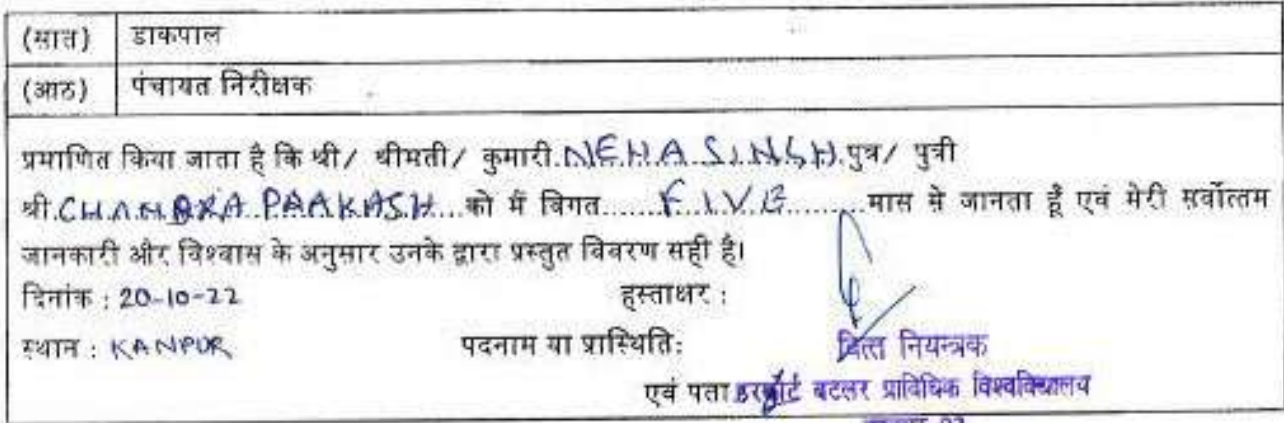 (सात) डाकपाल
(आठ) पंचायत निरीक्षक
प्रमाणित किया जाता है कि श्री/ श्रीमती/ कुमारी. NEHA SINGH पुत्र/ पुत्री
श्री. CHANDRA PRAKASH को मैं विगत FIVE मास से जानता हूँ एवं मेरी सर्वोत्तम
जानकारी और विश्वास के अनुसार उनके द्वारा प्रस्तुत विवरण सही है।
दिनांक : 20-10-22 हस्ताक्षर :
स्थान : KANPUR पदनाम या प्रास्थिति: वित्त नियन्त्रक
एवं पता हरकोर्ट बटलर प्राविधिक विश्वविद्यालय